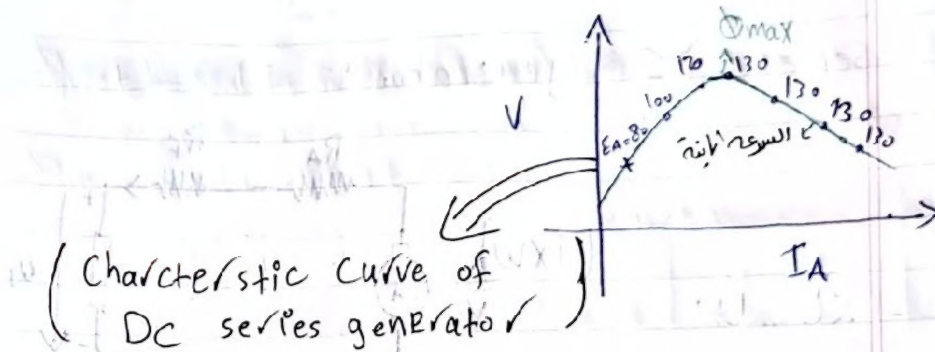 Φmax
120 130
130
100
V
130
EA=80
130
السرعة ثابتة
IA
(Charcterstic Curve of
Dc series generator)